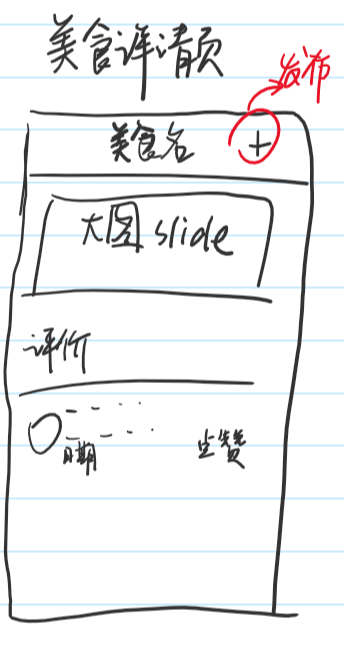 美食详情页
发布
美食名 +
大图 slide
评价
日期 点赞